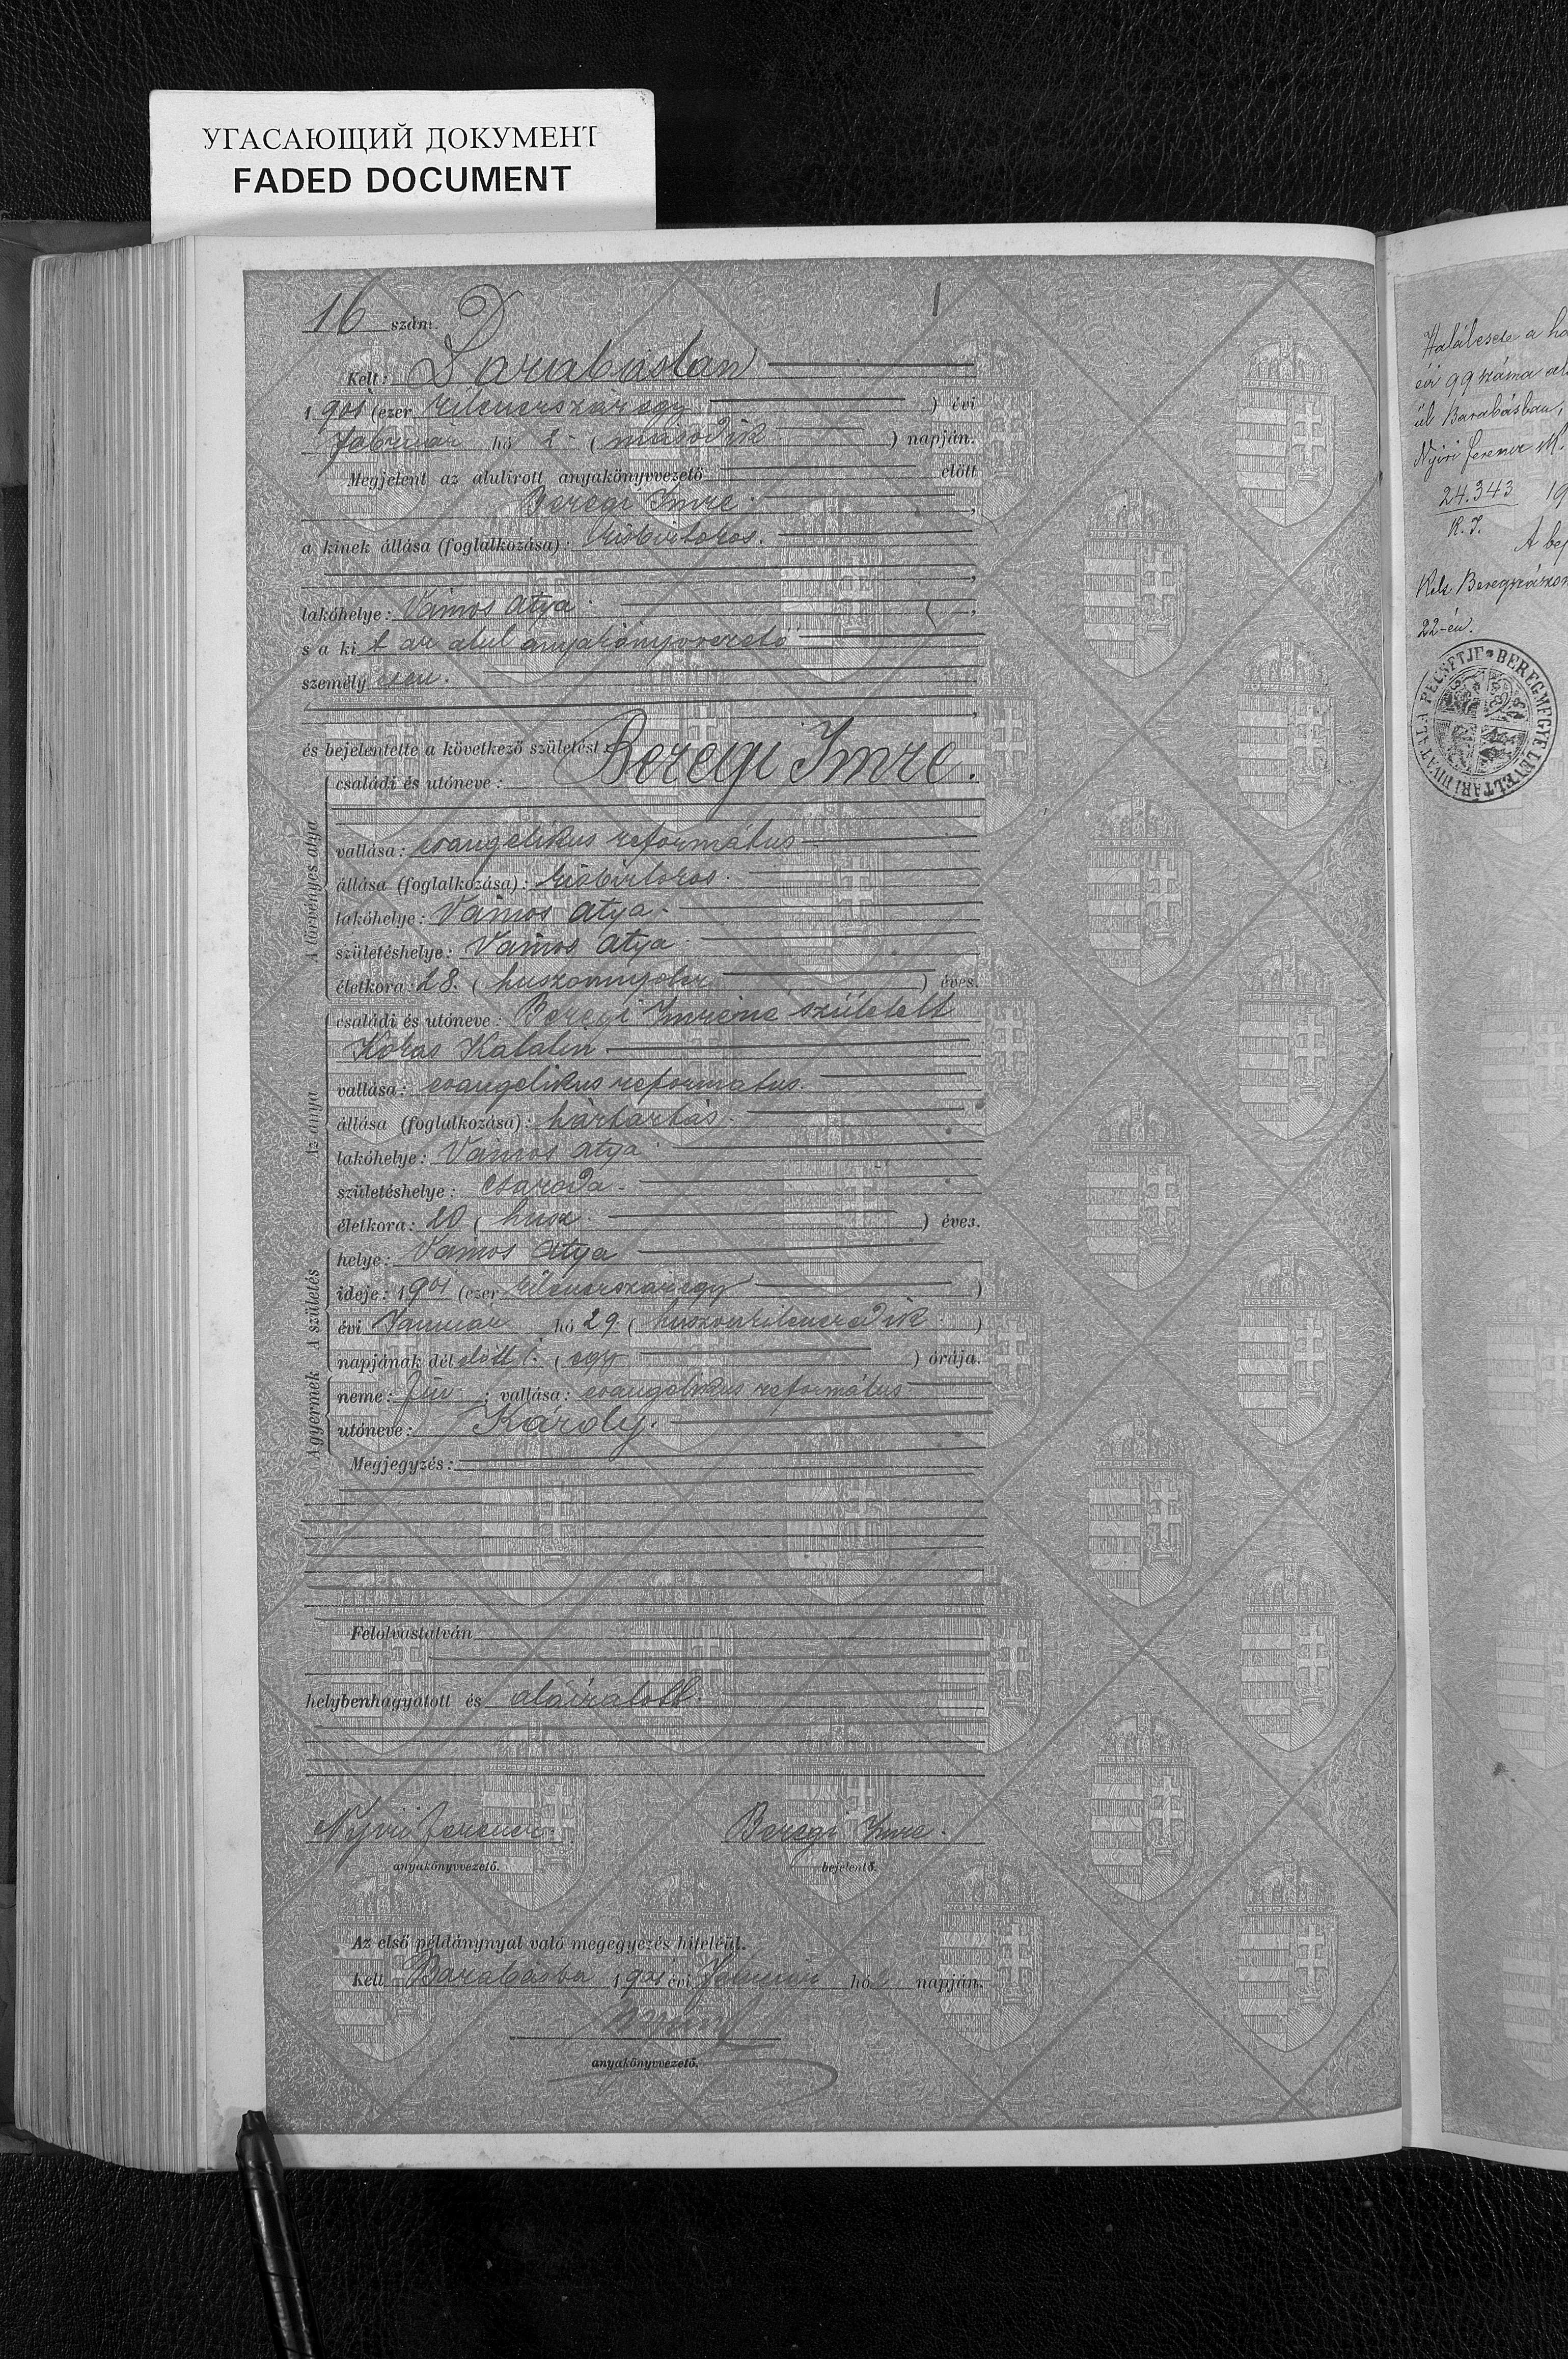 УГАСАЮЩИЙ ДОКУМЕНТ
FADED DOCUMENT
16 szám.
Kelt: Barabáslan
1901 (ezer kilencszázegy ) évi
február hó 2 - ( második ) napján.
Megjelent az alulirott anyakönyvvezető előtt
Beregi Imre ,
a kinek állása (foglalkozása): kisbirtokos.
,
lakóhelye: Vámos Atya ,
s a ki t az alul anyakönyvvezető
személy esen.
,
és bejelentette a következő születést:
A törvényes atya
családi és utóneve: Beregi Imre.
vallása: evangelikus református
állása (foglalkozása): kisbirtokos.
lakóhelye: Vámos Atya.
születéshelye: Vámos Atya
életkora: 28. ( huszonnyolcz ) éves.
Az anya
családi és utóneve: Beregi Imréné született
Kokas Katalin
vallása: evangelikus reformatus.
állása (foglalkozása): háztartás.
lakóhelye: Vámos Atya
születéshelye: Csaroda
életkora: 20 ( husz. ) éves.
A születés
helye: Vámos Atya
ideje: 1901 (ezer kilenczszázegy )
évi Január hó 29 ( huszonkilenczedik )
napjának dél előtt 1. ( egy ) órája.
A gyermek
neme: fiu ; vallása: evangelikus református
utóneve: Károly.
Megjegyzés:
Felolvastatván
helybenhagyatott és aláiratott.
Nyiri Ferencz Beregi Imre.
anyakönyvvezető. bejelentő.
Az első példánynyal való megegyezés hiteléül.
Kelt Barabásba 1901 évi Február hó 2 napján.
anyakönyvvezető.
Halálesete a ha
évi 99 száma al
ül Barabásban,
Nyiri Ferencz
24.343 19
R. I.
A bej
Kelt Beregszászon
22-én.
BEREGMEGYE LEVÉLTÁRI HIVATALA PECSÉTJE